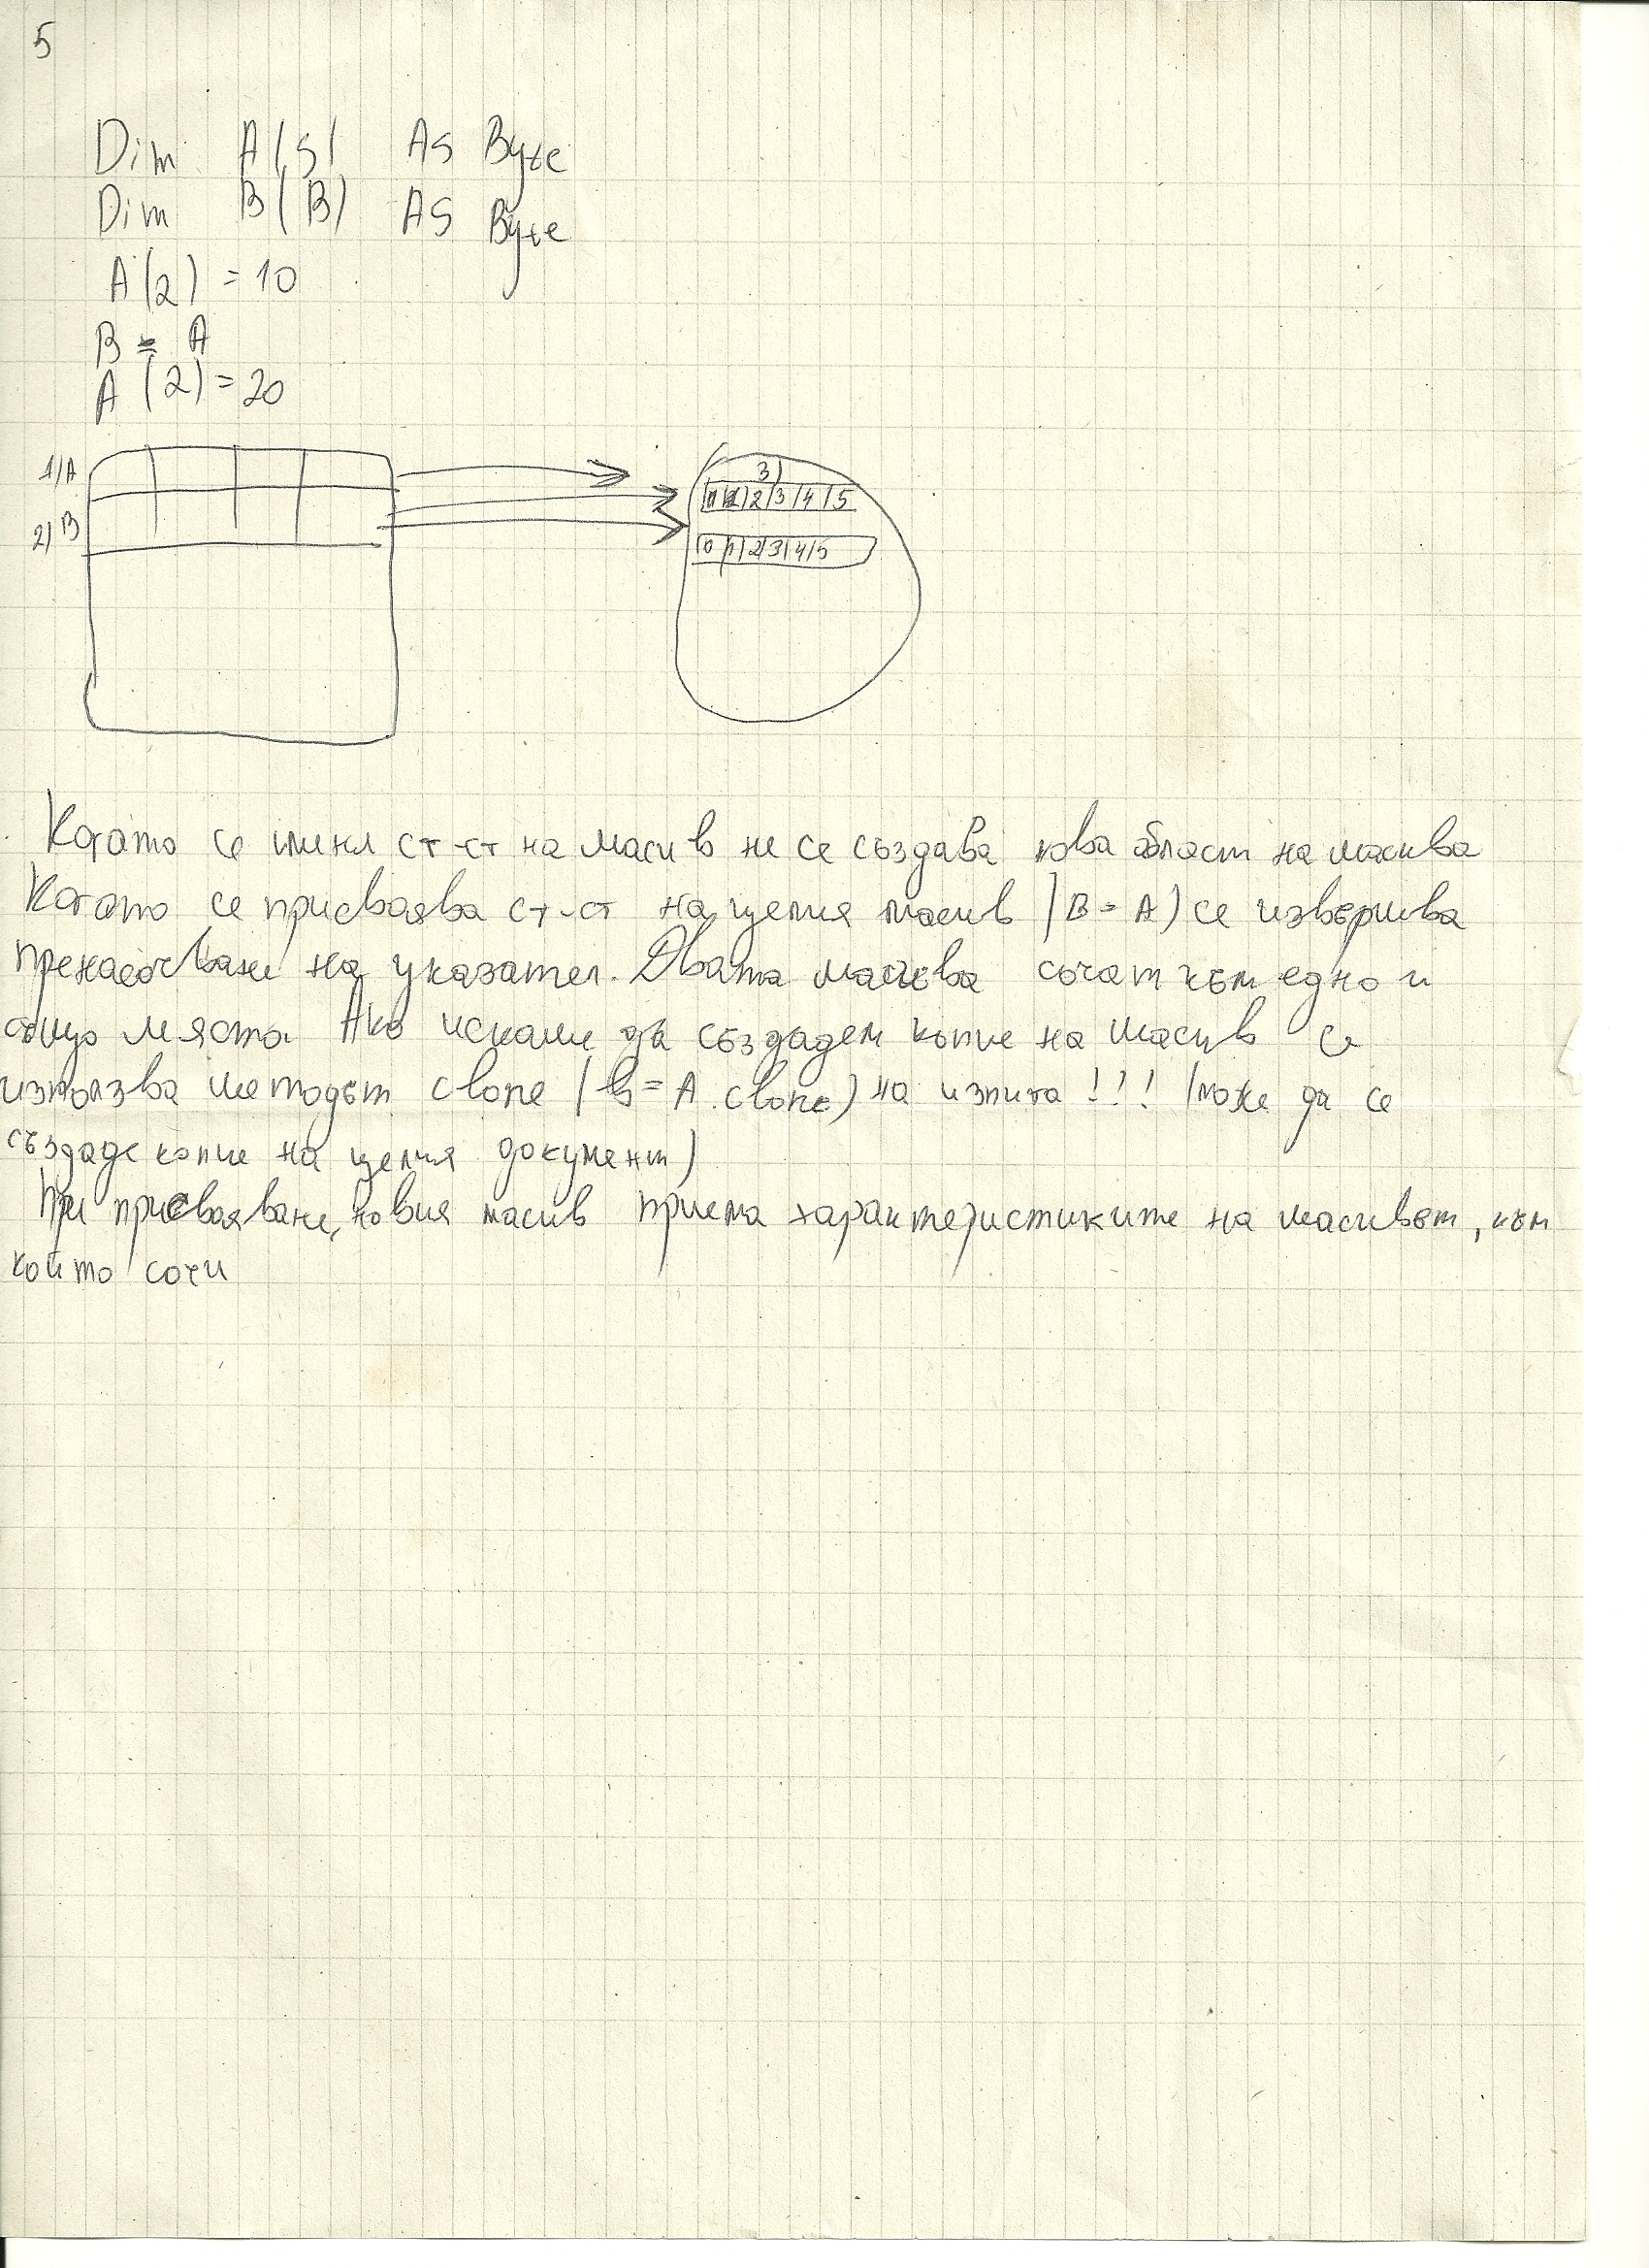 5
Dim A(5) As Byte
Dim B(B) As Byte
A(2) = 10
B = A
A(2) = 20
1/A
3)
1 2 3 4 5
2) B
0 1 2 3 4 5
Когато се меня ст-ст на масив не се създава нова област на масива
Когато се присвоява ст-ст на целия масив (B = A) се извършва
пренасочване на указател. Двата масива сочат към едно и
също място. Ако искаме да създадем копие на масив се
използва методът clone (B = A.clone) на изпита!!! (може да се
създаде копие на целия документ)
При присвояване, новия масив приема характеристиките на масивът, към
който сочи